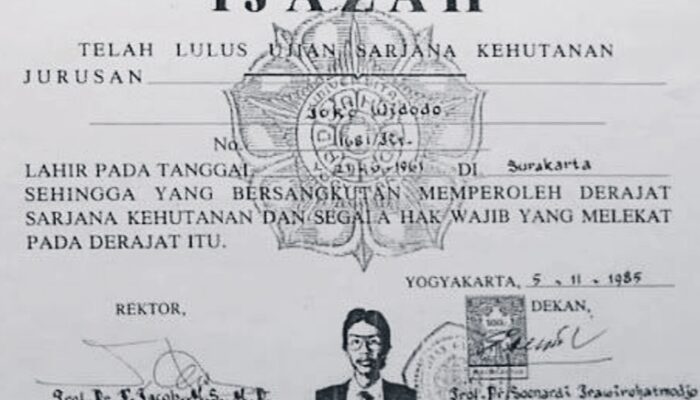 IJAZAH
TELAH LULUS UJIAN SARJANA KEHUTANAN
JURUSAN
Joko Widodo
No. 1681/KT.
LAHIR PADA TANGGAL 21-6-1961 DI Surakarta
SEHINGGA YANG BERSANGKUTAN MEMPEROLEH DERAJAT
SARJANA KEHUTANAN DAN SEGALA HAK WAJIB YANG MELEKAT
PADA DERAJAT ITU.
YOGYAKARTA, 5 - 11 - 1985
REKTOR, DEKAN,
Prof. Dr. T. Jacob, M.S., M.D. Prof. Dr. Soenardi Prawirohatmodjo